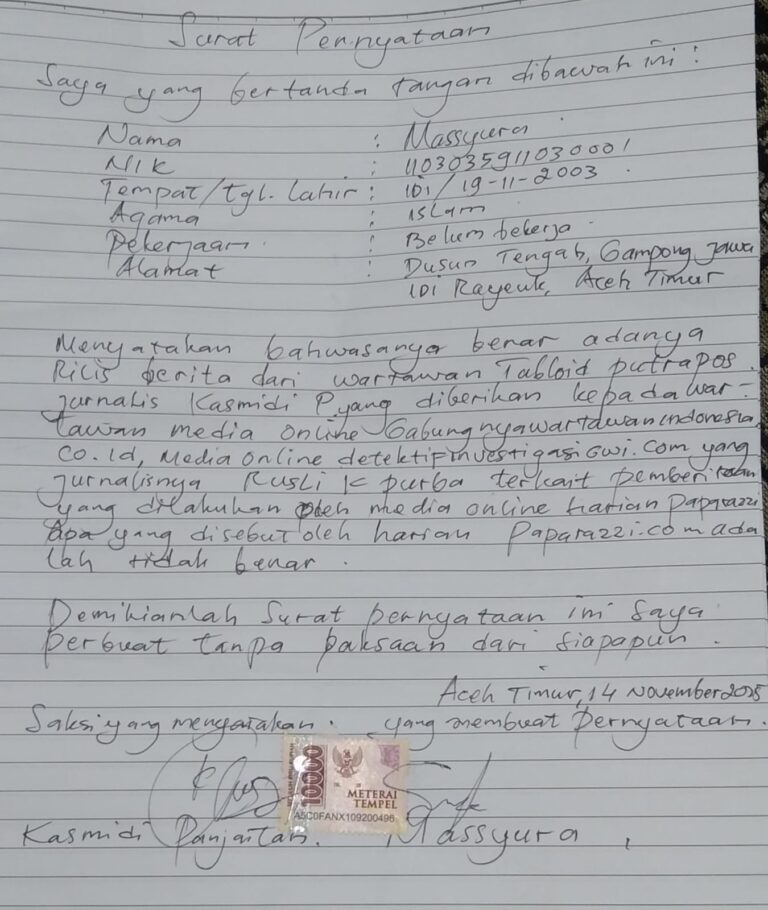 Surat Pernyataan
Saya yang bertanda tangan dibawah ini :
Nama : Massyura
NIK : 1103035911030001
Tempat/tgl. Lahir : IDI / 19-11-2003
Agama : Islam
Pekerjaan : Belum bekerja
Alamat : Dusun Tengah, Gampong Jawa
IDI Rayeuk, Aceh Timur
Menyatakan bahwasanya benar adanya
Rilis berita dari wartawan Tabloid putrapos.
jurnalis Kasmidi P. yang diberikan kepada war-
tawan media online Gabungnyawartawanindonesia.
co.id, Media online detektifinvestigasigwi.com yang
jurnalisnya Rusli K purba terkait pemberitaan
yang dilakukan oleh media online harian Paparazzi
apa yang disebut oleh harian Paparazzi.com ada
lah tidak benar.
Demikianlah Surat pernyataan ini Saya
perbuat tanpa paksaan dari siapapun.
Aceh Timur, 14 November 2025
Saksi yang menyatakan. yang membuat Pernyataan.
10000
METERAI
TEMPEL
A5C0FANX109200496
Kasmidi Panjaitan. Massyura